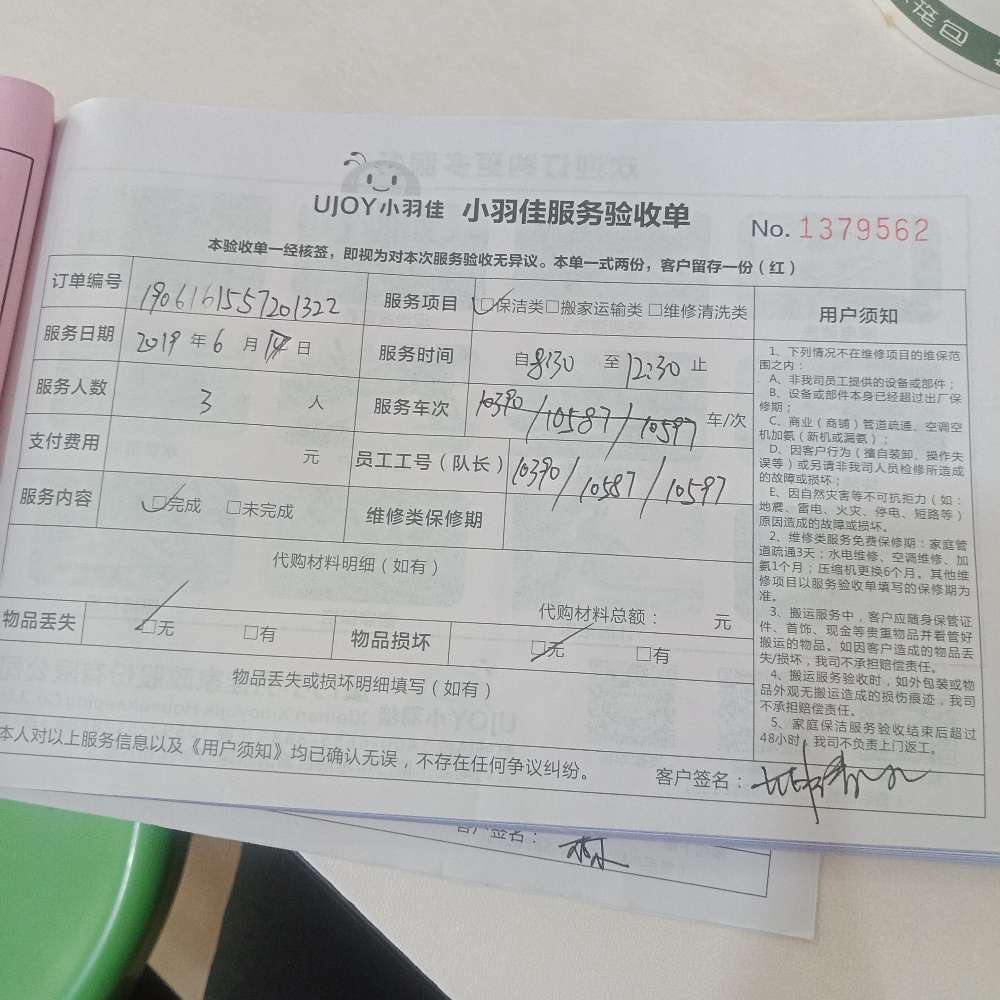 笼包
UJOY小羽佳 小羽佳服务验收单
No. 1379562
本验收单一经核签，即视为对本次服务验收无异议。本单一式两份，客户留存一份（红）
订单编号 1906161557201322 服务项目 □保洁类□搬家运输类 □维修清洗类
服务日期 2019 年 6 月 日 服务时间 自8:30 至12:30 止
服务人数 3 人 服务车次 10390/10587/10597 车/次
支付费用 元 员工工号（队长） 10390/10587/10597
服务内容 □完成 □未完成 维修类保修期
代购材料明细（如有）
代购材料总额： 元
物品丢失 □无 □有 物品损坏 □无 □有
物品丢失或损坏明细填写（如有）
本人对以上服务信息以及《用户须知》均已确认无误，不存在任何争议纠纷。
客户签名：
用户须知
1、下列情况不在维修项目的维保范
围之内：
A、非我司员工提供的设备或部件；
B、设备或部件本身已经超过出厂保
修期；
C、商业（商铺）管道疏通、空调空
机加氨（新机或漏氨）；
D、因客户行为（擅自装卸、操作失
误等）或另请非我司人员检修所造成
的故障或损坏；
E、因自然灾害等不可抗拒力（如：
地震、雷电、火灾、停电、短路等）
原因造成的故障或损坏。
2、维修类服务免费保修期：家庭管
道疏通3天；水电维修、空调维修、加
氨1个月；压缩机更换6个月。其他维
修项目以服务验收单填写的保修期为
准。
3、搬运服务中，客户应随身保管证
件、首饰、现金等贵重物品并看管好
搬运的物品。如因客户造成的物品丢
失/损坏，我司不承担赔偿责任。
4、搬运服务验收时，如外包装或物
品外观无搬运造成的损伤痕迹，我司
不承担赔偿责任。
5、家庭保洁服务验收结束后超过
48小时，我司不负责上门返工。
客户签名：
林